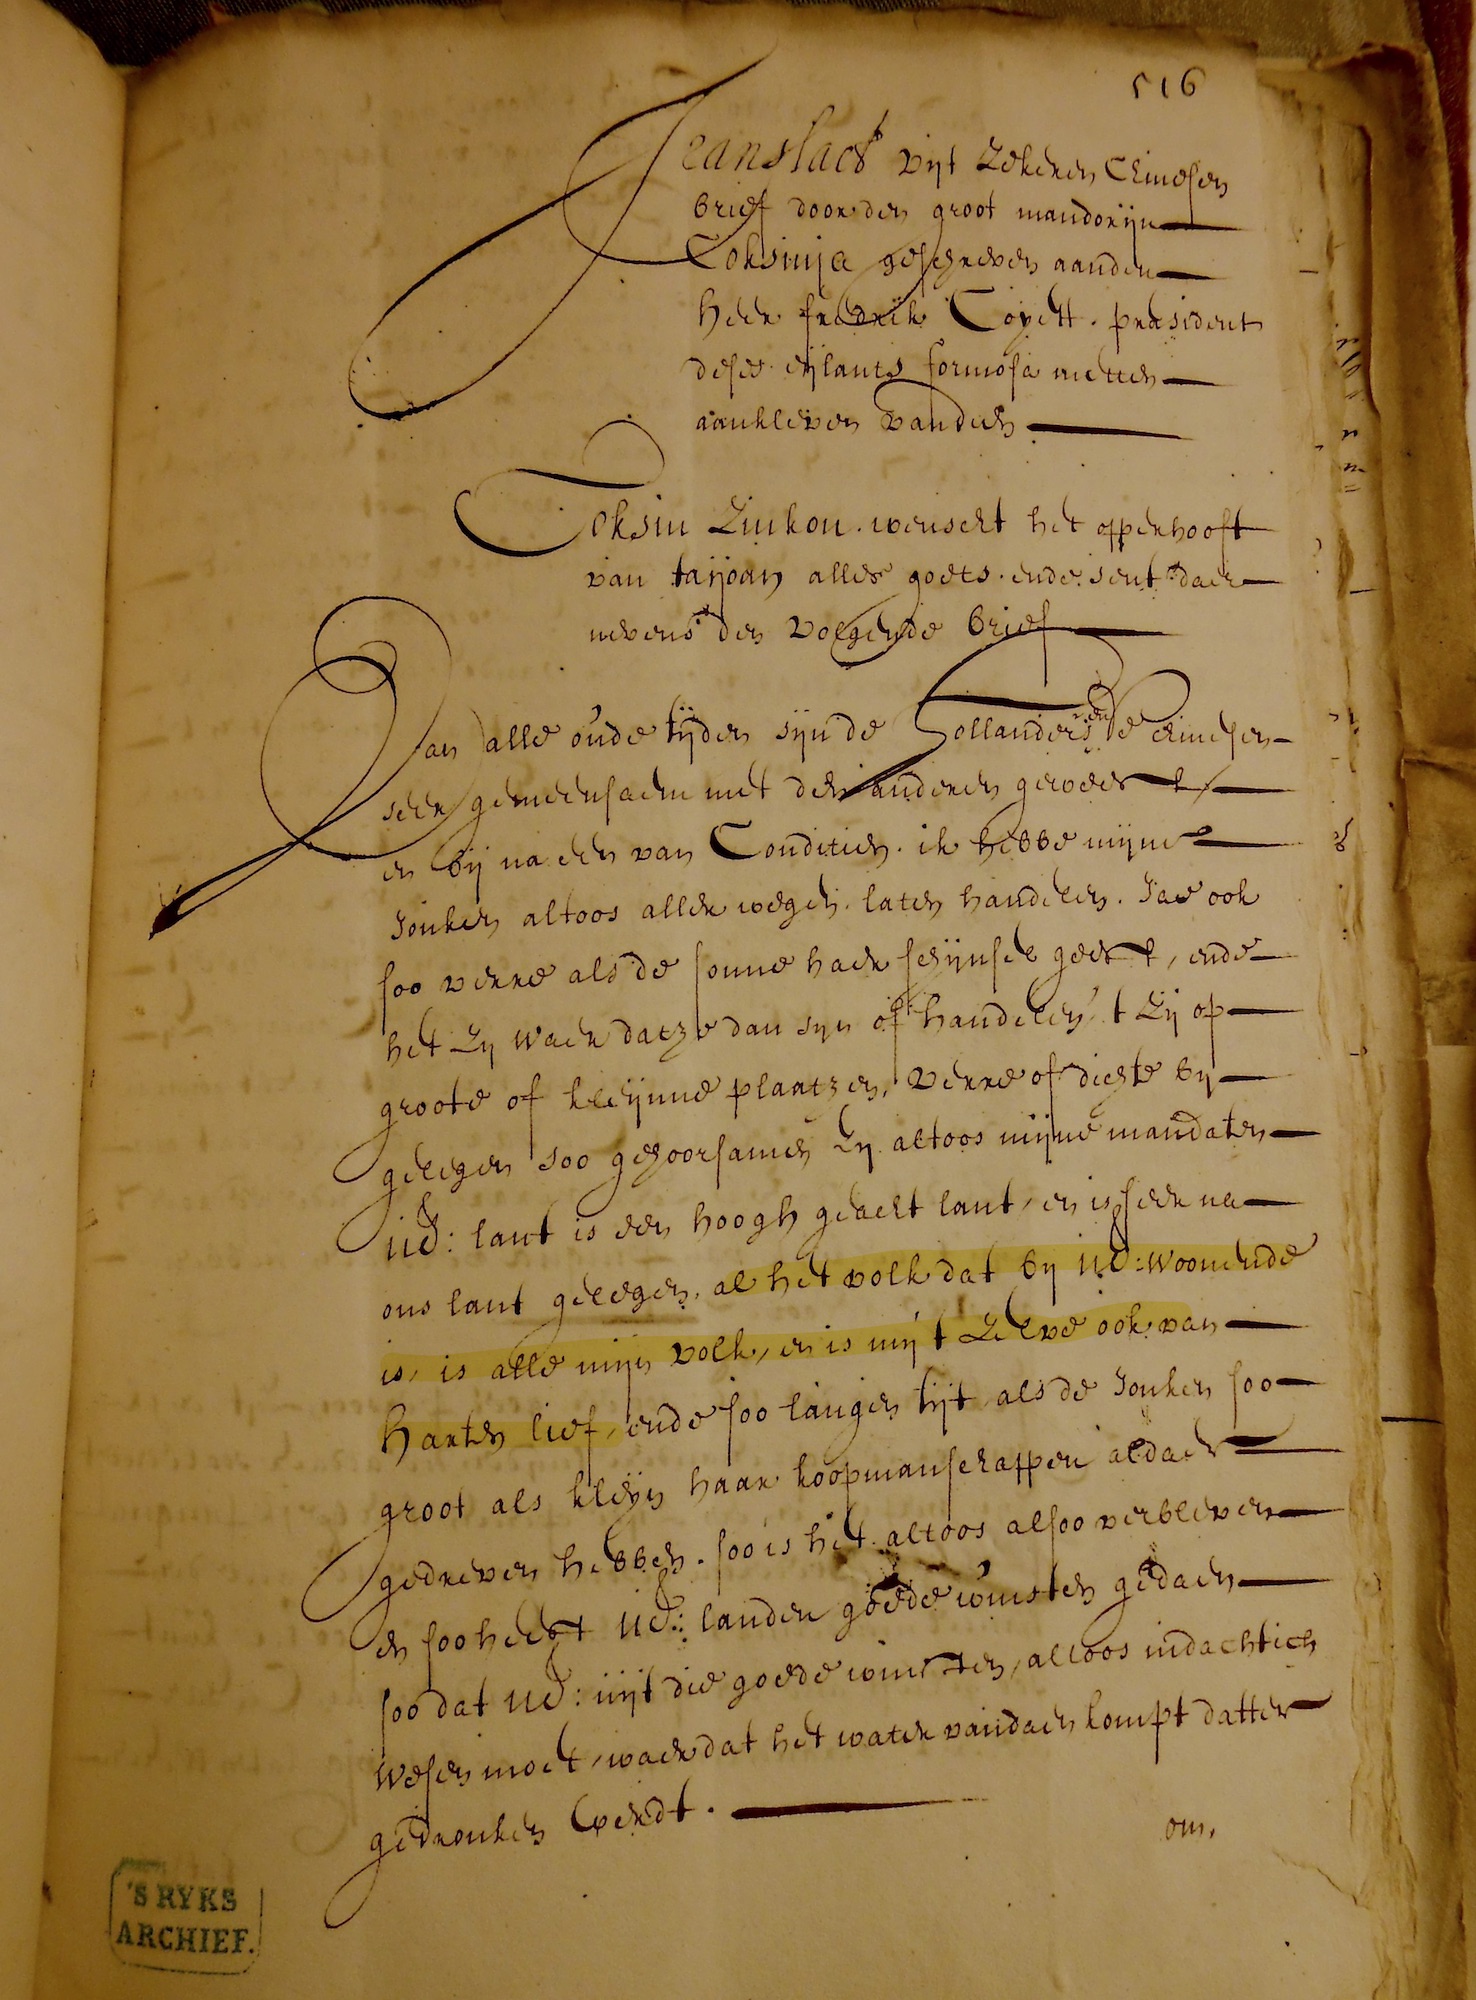 516
Translact uijt Zekeren Chinesen
brief door den groot mandorijn
Coksinja geschreven aanden
heer fredrik Coyett. president
deses eijlants formosa metten
aankleven vandien
Coksin Zinkon. wenscht het opperhooft
van taijoan alles goets. ende sent daer
nevens den volgende brief
Van alle oude tijden sijn de Hollanders en de Chinesen
seer gemeensaem met den anderen geweest
en bij na een van Conditien. ik hebbe mijne
Jonken altoos aller wegen. laten handelen. Jae ook
soo verre als de sonne haer schijnsel geeft, ende
het Zij waer datze dan sijn of handelen, t Zij op
groote of kleijnne plaatzen, verre of dichte bij
gelegen soo gehoorsamen Zij altoos mijne mandaten
UE: lant is een hoogh geacht lant, en is seer na
ons lant gelegen, al het volk dat bij UE: woonende
is, is alle mijn volk, en is mij t Zelve ook van
harten lief, ende soo langen tijt als de Jonken soo
groot als kleijn haar koopmanschappen aldaer
gedreven hebben. soo is het altoos alsoo verbleven
en soo heeft UE: landen goede winsten gedaen
soo dat UE: uijt die goede winsten, altoos indachtich
wesen moet, waer dat het water vandaen kompt datter
gedronken werdt.
om,
'S RYKS
ARCHIEF.